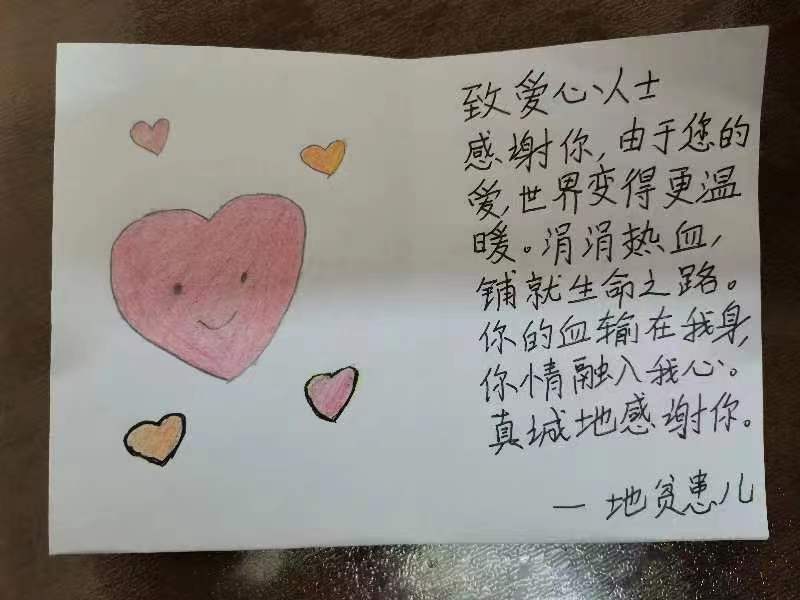 致爱心人士
感谢你,由于您的
爱,世界变得更温
暖。涓涓热血,
铺就生命之路。
你的血输在我身,
你情融入我心。
真城地感谢你。
— 地贫患儿